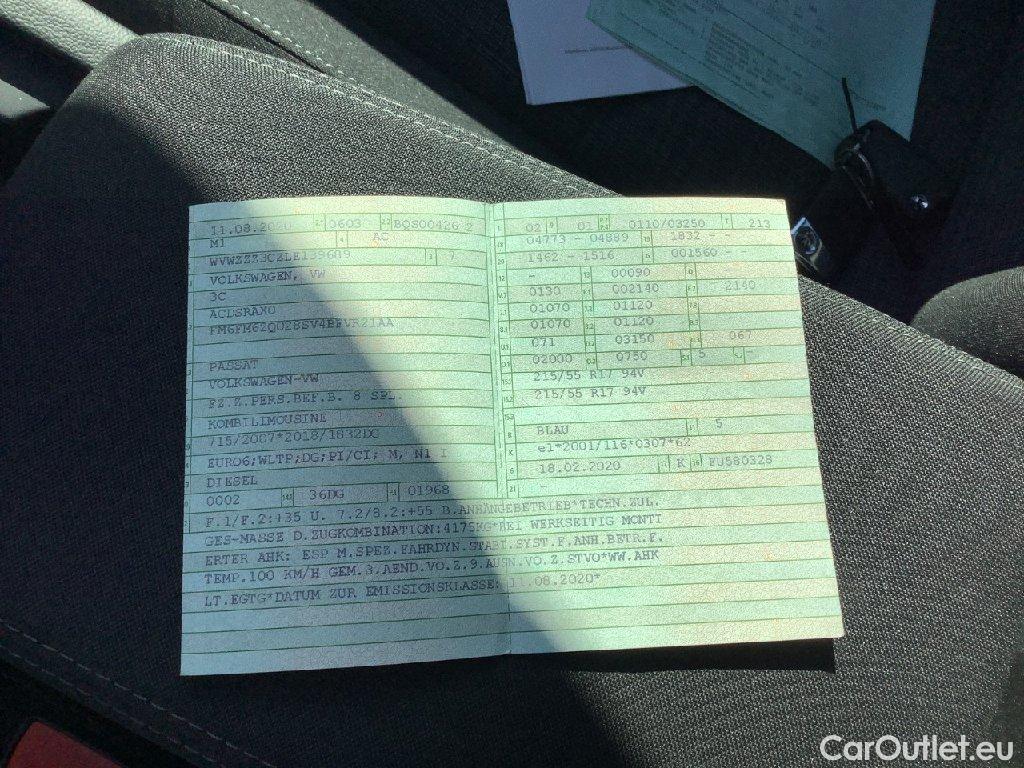 11.08.2020 0603 BQS00426 2
M1 AC
7
VOLKSWAGEN, VW
3C
ACDSRAX0
PASSAT
VOLKSWAGEN-VW
FZ.Z.PERS.BEF.B. 8 SPL.
KOMBILIMOUSINE
715/2007*2018/1832DG
EURO6;WLTP;DG;PI/CI; M, N1 I
DIESEL
0002 36DG 01968
02 01 0110/03250 213
04773 - 04889 1832 - -
1462 - 1516 001560 - -
- 00090
0130 002140 2140
01070 01120
01070 01120
071 03150 067
02000 0750 5 -
215/55 R17 94V
215/55 R17 94V
BLAU 5
e1*2001/116*0307*62
18.02.2020 K FU580328
-
F.1/F.2:+35 U. 7.2/8.2:+55 B.ANHÄNGEBETRIEB*TECHN.ZUL.
GES-MASSE D.ZUGKOMBINATION:4175KG*BEI WERKSEITIG MONTI
ERTER AHK: ESP M.SPEZ.FAHRDYN.STABI.SYST.F.ANH.BETR.F.
TEMP.100 KM/H GEM.3.AEND.VO.Z.9.AUSN.VO.Z.STVO*WW.AHK
LT.EGTG*DATUM ZUR EMISSIONSKLASSE: 11.08.2020*
CarOutlet.eu